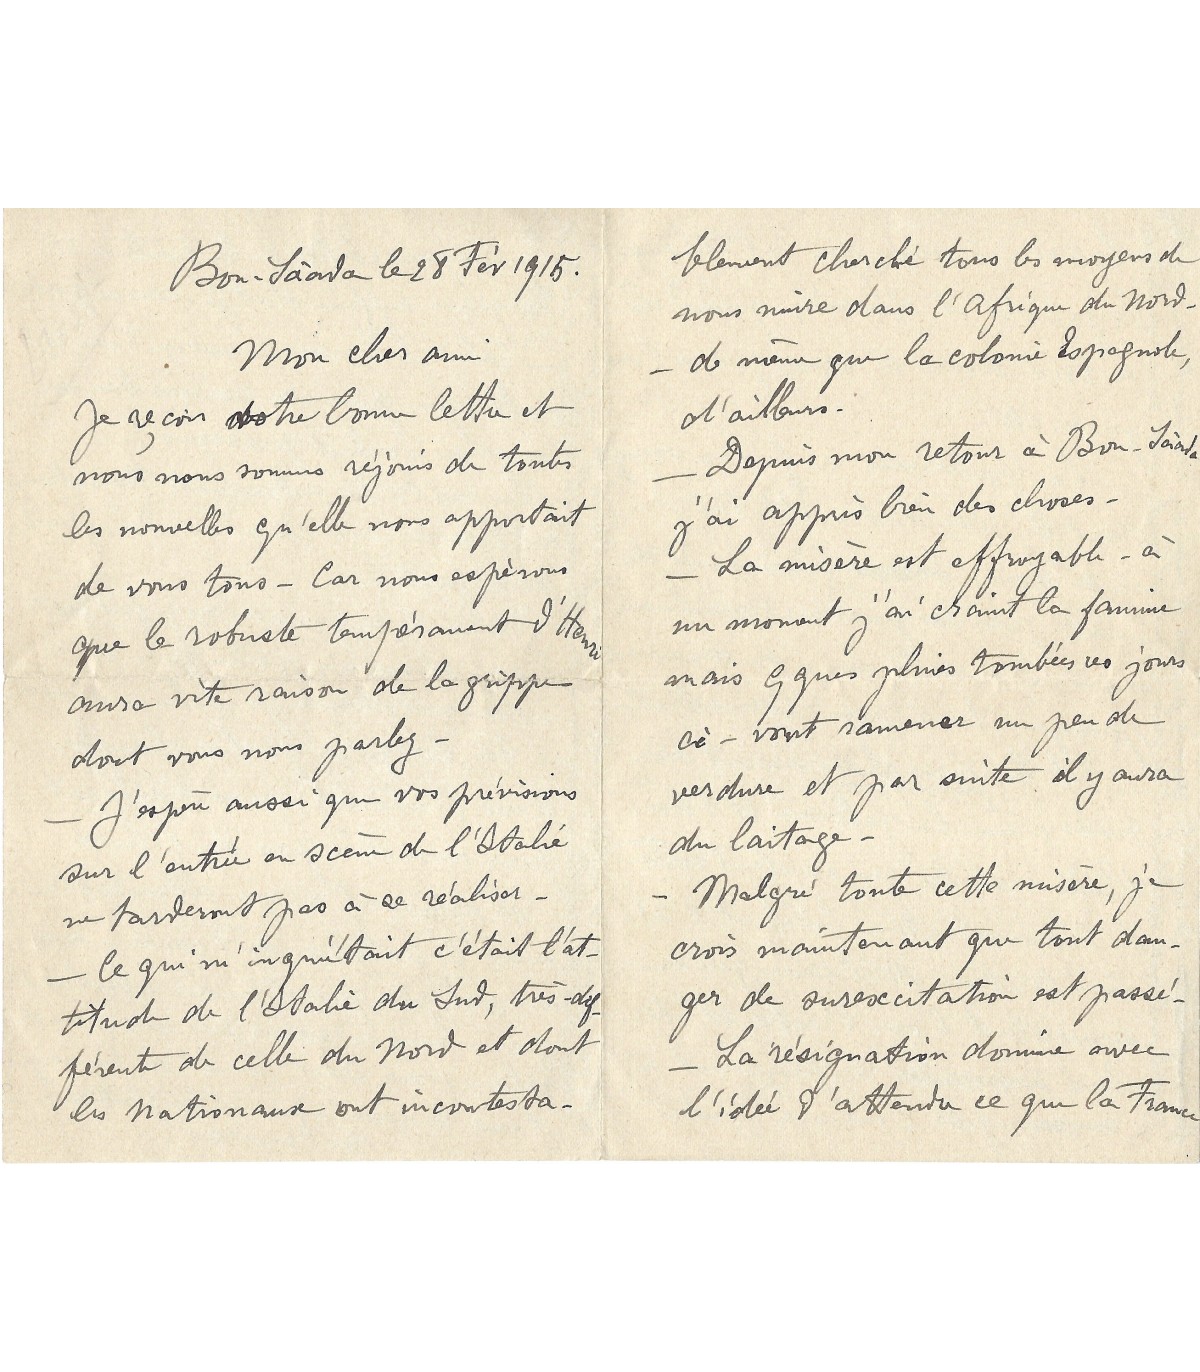 Bou-Sâada le 28 Fév 1915.
Mon cher ami
Je reçois votre bonne lettre et
nous nous sommes réjouis de toutes
les nouvelles qu'elle nous apportait
de vous tous - Car nous espérons
que le robuste tempérament d'Henri
aura vite raison de la grippe
dont vous nous parlez -
- J'espère aussi que vos prévisions
sur l'entrée en scène de l'Italie
ne tarderont pas à se réaliser -
- Ce qui m'inquiétait c'était l'at-
titude de l'Italie du Sud, très-dif-
férente de celle du Nord et dont
les Nationaux ont incontesta-
blement cherché tous les moyens de
nous nuire dans l'Afrique du Nord -
- de même que la colonie Espagnole,
d'ailleurs -
- Depuis mon retour à Bou-Sâada
j'ai appris bien des choses -
- La misère est effroyable - à
un moment j'ai craint la famine
mais qques pluies tombées ces jours
ci - vont ramener un peu de
verdure et par suite il y aura
du laitage -
- Malgré toute cette misère, je
crois maintenant que tout dan-
ger de surexcitation est passé -
- La résignation domine avec
l'idée d'attendre ce que la France